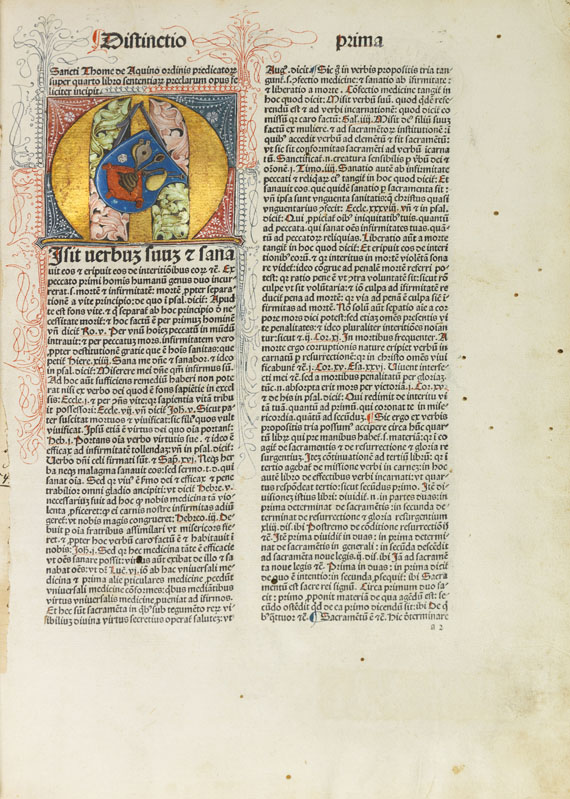 Distinctio prima
Sancti Thome de Aquino ordinis predicatorꝝ
super quarto libro sententiaꝝ preclarum opus fe
liciter incipit.
Isit verbuꝫ suuꝫ ⁊ sana
uit eos ⁊ eripuit eos de interitionibus eoꝝ ⁊c̄. Ex
peccato primi homis humanū genus duo incur
rerat. s. mortē ⁊ infirmitatē: mortē ꝓpter separa-
tionē a vite principio: de quo i psal. dicit̉: Apud
te est fons vite. ⁊
cessitate morit̉: ⁊ hoc factū ē per primuꝫ hominē
vn̄ dicit̉ Ro. v. Per vnū hoīeꝫ peccatū in mūdū
intrauit: ⁊ per peccatuꝫ mors. infirmitatem vero
ꝓpter destitutionē gratie que ē hoīs sanitas: que
petit̉ Hiere. xiiij. Sana me dn̄e ⁊ sanabor. ⁊ ideo
in psal. dicit̉: Miserere mei dn̄e qm̄ infirmus sū.
Ad hoc aūt sufficiens remediū haberi non pote
rat nisi ex verbo dei quod ē fons sapiētie in excel
sis: Eccle. i. ⁊ per ꝯn̄s vite: qꝛ sapientia vitā tribu
it possessori: Eccle. vij. vn̄ dicit̉ Joh. v. Sicut pa-
ter suscitat mortuos ⁊ viuificat: sic filiꝰ quos vult
viuificat. Ipsū etiā ē virtus dei quo oīa portant̉:
Heb. i. Portans oīa verbo virtutis sue. ⁊ ideo ē
efficax ad infirmitatē tollendaꝫ. vn̄ in psal. dicit̉:
Uerbo dn̄i celi firmati sūt. ⁊ Sap. xvi. Neqꝫ her
ba neqꝫ malagma sanauit eos: sed sermo. t. d. qui
sanat oīa. Sed qꝛ viuꝰ ē smo dei ⁊ efficax ⁊ pene
trabilior omni gladio ancipiti: vt dicit̉ Hebre. v.
necessariuꝫ fuit ad hoc ꝙ nobis medicina tā vio
lenta ꝓficeret: ꝙ ei carnis nostre infirmitas adiū
geret̉: vt nobis magis congrueret: Hebreo. iij. De
buit ꝑ oīa fratribus assimilari vt misericors fie
ret. ⁊ ꝓpter hoc verbū caro factū ē ⁊ habitauit i
nobis: Joh. i. Sed qꝛ hec medicina tāte ē efficacie
vt oēs sanare possit: virtus aūt exibat de illo ⁊ sa
nabat oēs: vt dr̄ Luc. vi. iō ab hac vniuersali me
dicina ⁊ prima alie pticulares medicine ꝓcedūt
vniuersali medicine cōformes: qbus mediātibus
virtus vniuersalis medicine ꝑueniat ad ifirmos.
Et hec sūt sacramēta in qbꝰ sub tegumēto reꝝ vi
sibiliuꝫ diuina virtus secretius operat̉ salutēꝫ: vt
Aug. dicit. Sic g̉ in verbis propositis tria tan
gunt̉. s. ꝯfectio medicine: ⁊ sanatio ab ifirmitate:
⁊ liberatio a morte. Cōfectio medicine tangit̉ in
hoc quod dicit̉: Misit verbū suū. quod qdē refe-
rendū est ⁊ ad verbi incarnationē: quod dicit̉ eos
missū qꝛ caro factū: Gal. iiij. Misit deꝰ filiū suuꝫ
factū ex muliere. ⁊ ad sacramētoꝝ institutionē: i
quibꝰ accedit verbū ad elemētū ⁊ fit sacramētū:
vt sic sit cōformitas sacramēti ad verbū incarna
tū. Sanctificat̉. n. creatura sensibilis ꝑ v̓bū dei ⁊
ōionē. i. Timo. iiij. Sanatio autē ab infirmitate
peccati ⁊ reliqaꝝ eiꝰ tangit̉ in hoc quod dicit̉: Et
sanauit eos. que quidē sanatio ꝑ sacramenta fit:
vn̄ ipsa sunt vnguenta sanitatis: q̄ christus quasi
vnguentarius ꝯfecit: Eccle. xxxviij. vn̄ ⁊ in psal.
dicit̉: Qui ꝓpiciat̉ oībꝰ iniquitatibꝰ tuis. quantū
ad peccata. qui sanat oēs infirmitates tuas. quā-
tū ad peccatoꝝ reliquias. Liberatio aūt a morte
tangit̉ in hoc quod dicit̉: Et eripuit eos de interi
tionibꝰ eoꝝ. ⁊ qꝛ interitus in mortē violētā sona
re videt̉: ideo cōgrue ad penalē mortē referri po-
test: qꝛ ratio pene ē vt ꝯtra voluntatē sit: sicut rō
culpe vt sit voluntaria: ⁊ iō culpa ad ifirmitatē re
ducit̉ pena ad mortē: qꝛ via ad penā ē culpa sic i-
firmitas ad mortē. Nō solū aūt separatio aīe a cor
pore mors dici potest: sed etiaꝫ omēs pnsentis vi
te penalitates: ⁊ ideo pluraliter interitiōes noian
tur: sicut ⁊ ij. Cor. xi. In mortibus frequenter. A
morte ergo corruptionis nature eripuit verbū in
carnatū ꝑ resurrectionē: qꝛ in christo omēs viui
ficabunt̉ ⁊c̄. i. Cor. xv. Esa. xxvi. Uiuent interfe-
cti mei ⁊c̄ sed a mortibus penalitatū per gloriaꝫ:
tūc. n. absorpta erit mors per victoria. i. Cor. xv.
⁊ de his in psal. dicit̉: Qui redimit de interitu vi
tā tuā. quantū ad primū qui coronat te in mise-
ricordia. quātū ad secūduꝫ. Sic ergo ex verbis
propositis tria possumꝰ accipere circa hūc quar
tū librꝝ qui pre manibus habet̉. s. materiā: qꝛ i eo
agit̉ de sacramentis ⁊ de resurrectione ⁊ gloria re
surgentiuꝫ. Itez cōtinuationē ad tertiū librū: qꝛ i
tertio agebat̉ de missione verbi in carnez: in hoc
autē libro de effectibus verbi incarnati: vt quar-
tus respōdeat tertio: sicut secūdus primo. Itē di
uisionez istius libri: diuidit̉. n. in partes duas: in
prima determinat de sacramētis: in secunda de-
terminat de resurrectione ⁊ gloria resurgentium
xliij. dis. ibi Postremo de cōditione resurrectiōis
⁊c̄. Itē prima diuidit̉ in duas: in prima determi
nat de sacramētis in generali: in secūda descēdit
ad sacramēta noue legis: ij. dis. ibi Jā ad sacramē
ta noue legis ⁊c̄. Prima in duas: in prima dicit
de quo ē intentio: in secunda ꝓsequit̉: ibi Sacra
mentū est sacre rei signū. Circa primum duo fa-
cit: primo ꝓponit materiā de qua agēdū est: se-
cūdo ostēdit qd̄ de ea primo dicendū sit: ibi De q̄-
bꝰ q̄ttuor ⁊c̄. Sacramētū ē ⁊c̄. Hic determinare
a 2